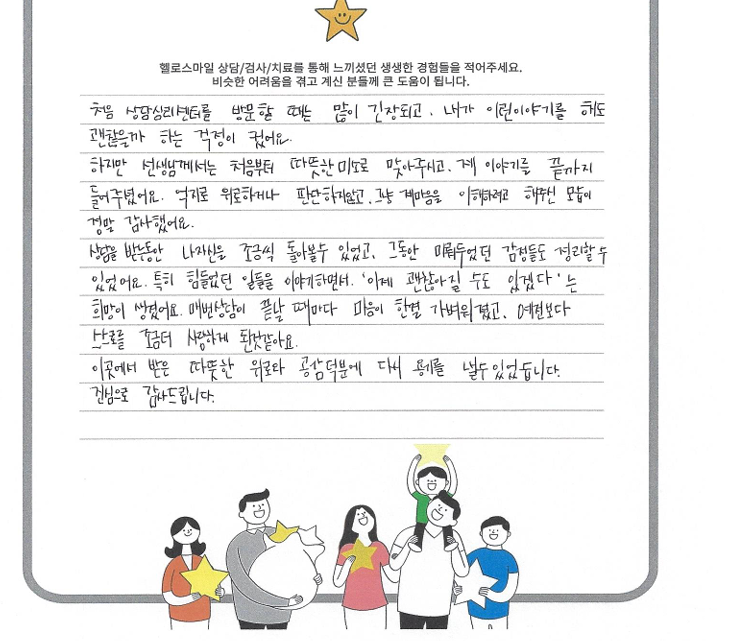 헬로스마일 상담/검사/치료를 통해 느끼셨던 생생한 경험들을 적어주세요.
비슷한 어려움을 겪고 계신 분들께 큰 도움이 됩니다.
처음 상담심리센터를 방문할 때는 많이 긴장되고, 내가 이런이야기를 해도
괜찮을까 하는 걱정이 컸어요.
하지만 선생님께서는 처음부터 따뜻한미소로 맞아주시고, 제 이야기를 끝까지
들어주셨어요. 억지로 위로하거나 판단하지않고, 그냥 제마음을 이해하려고 해주신 모습이
정말 감사했어요.
상담을 받는동안 나자신을 조금씩 돌아볼수 있었고, 그동안 미뤄두었던 감정들도 정리할수
있었어요. 특히 힘들었던 일들을 이야기하면서, '이제 괜찮아질 수도 있겠다'는
희망이 생겼어요. 매번상담이 끝날 때마다 마음이 한결 가벼워졌고, 예전보다
스스로를 조금더 사랑하게 된것같아요.
이곳에서 받은 따뜻한 위로와 공감덕분에 다시 용기를 낼수있었습니다.
진심으로 감사드립니다.